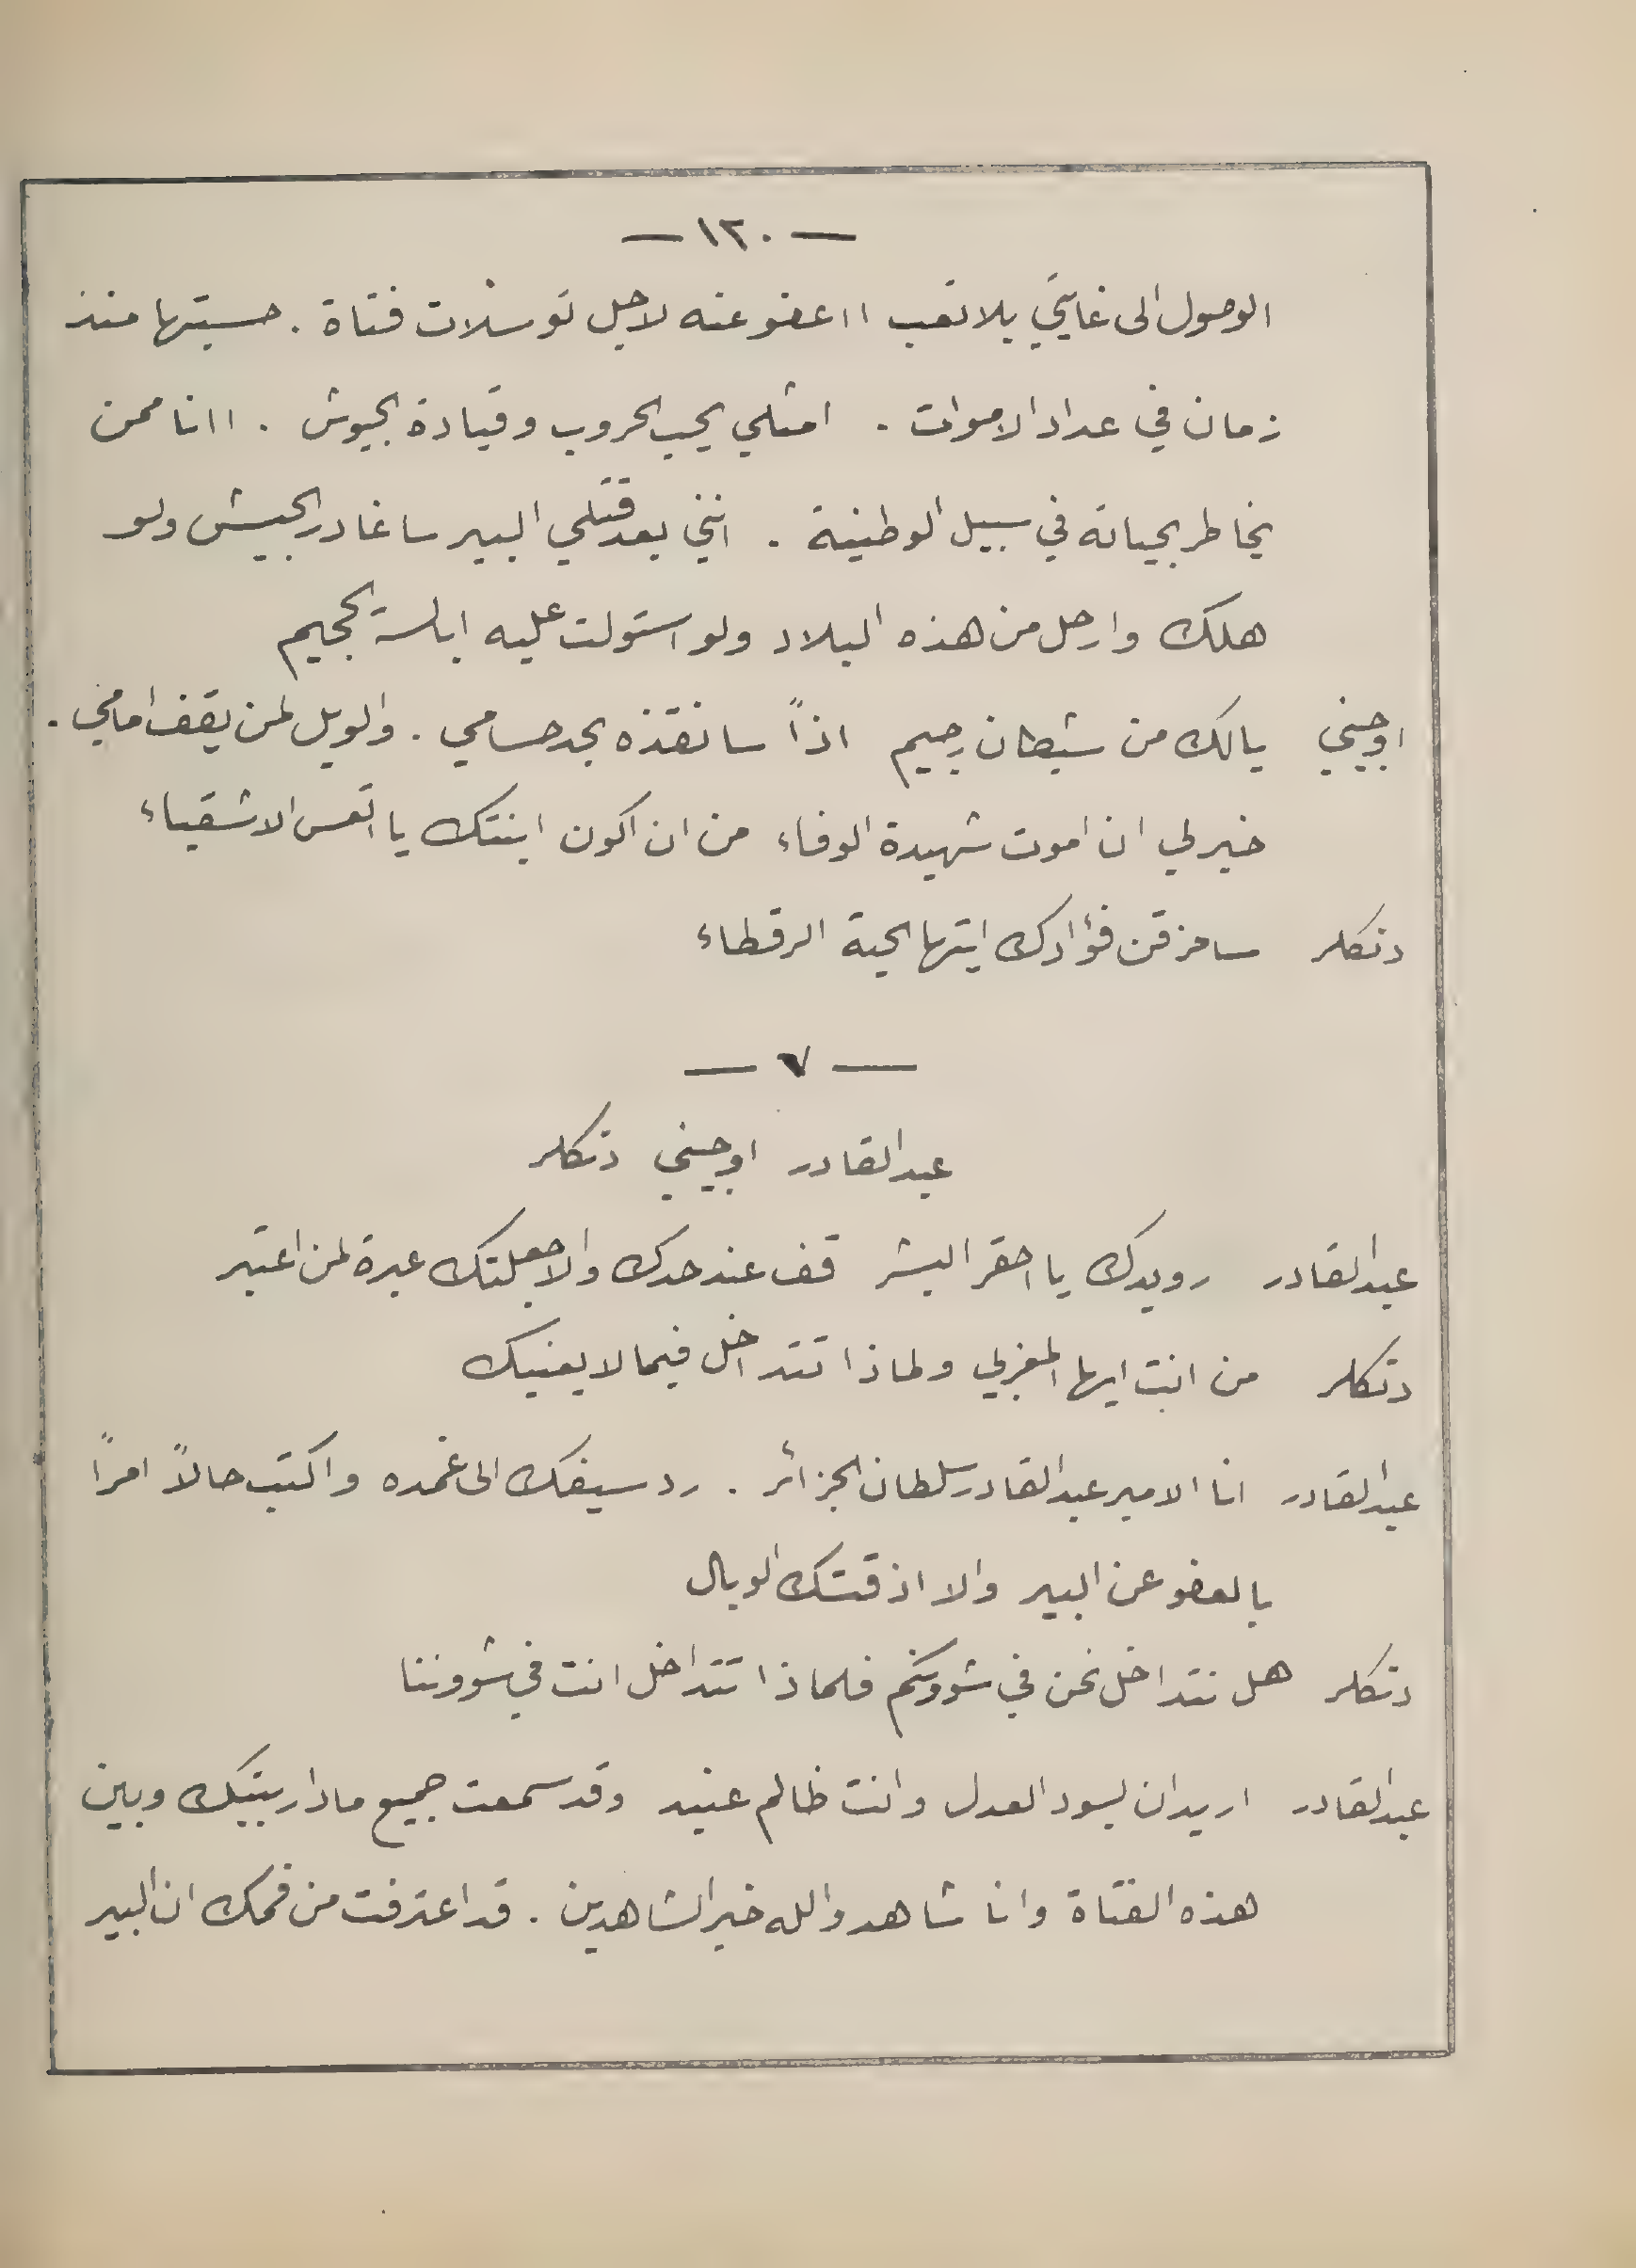 — ١٢٠ —
الوصول الى غايتي بلا تعب ااعفو عنه لاجل توسلات فتاة . حسبتها منذ
زمان في عداد الاموات . امثلي يحب الحروب وقيادة الجيوش . اانا ممن
يخاطر بحياته في سبيل الوطنية . انني بعد قتلي البير ساغادر الجيش ولو
هلك وارحل من هذه البلاد ولو استولت عليه ابالسة الجحيم
اوجيني يالك من شيطان رجيم اذاً سانقذه بحد حسامي . والويل لمن يقف امامي .
خير لي ان اموت شهيدة الوفاء من ان اكون ابنتك يا اتعس الاشقياء
دنكلر سامزقن فؤادك ايتها الحية الرقطاء
— ٧ —
عبد القادر اوجيني دنكلر
عبد القادر رويدك يا احقر البشر قف عند حدك والا جعلتك عبرة لمن اعتبر
دنكلر من انت ايها المغربي ولماذا تتداخل فيما لا يعنيك
عبد القادر انا الامير عبد القادر سلطان الجزائر . رد سيفك الى غمده واكتب حالاً امراً
بالعفو عن البير والا اذقتك الوبال
دنكلر هل نتداخل نحن في شوونكم فلماذا تتداخل انت في شووننا
عبد القادر اريد ان يسود العدل وانت ظالم عنيد وقد سمعت جميع ما دار بينك وبين
هذه الفتاة وانا شاهد والله خير الشاهدين . قد اعترفت من فمك ان البير